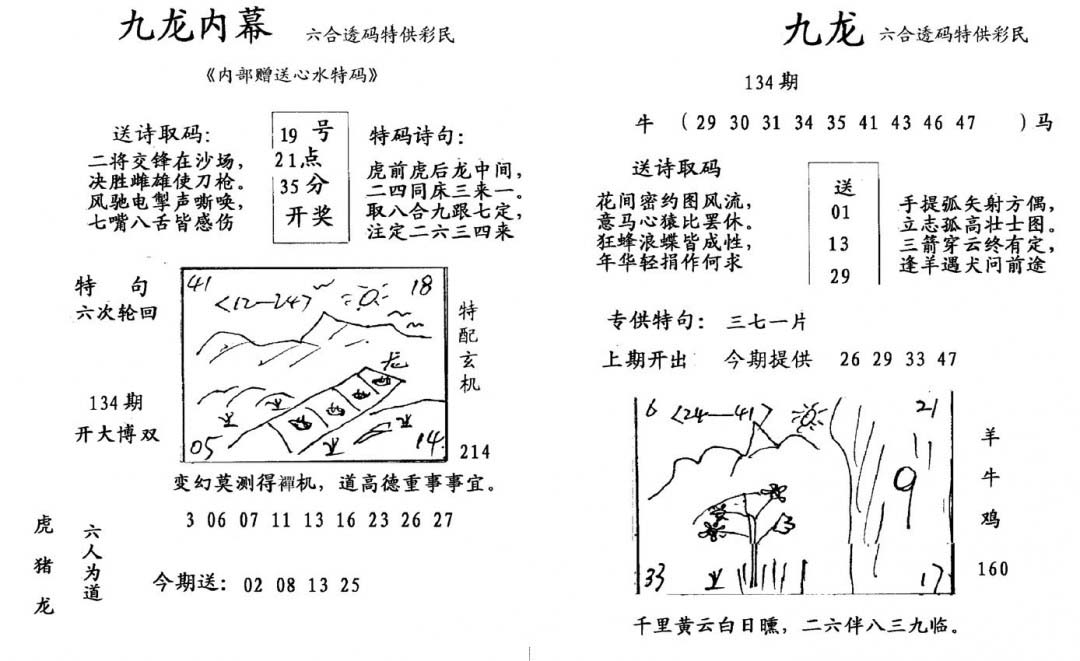 九龙内幕 六合透码特供彩民
《内部赠送心水特码》
送诗取码:
二将交锋在沙场,
决胜雌雄使刀枪。
风驰电掣声嘶唤,
七嘴八舌皆感伤
19 号
21点
35分
开奖
特码诗句:
虎前虎后龙中间,
二四同床三来一。
取八合九跟七定,
注定二六三四来
特 句
六次轮回
134期
开大博双
41
<12—24>
18
龙
05
14
特配玄机
214
变幻莫测得禪机, 道高德重事事宜。
3 06 07 11 13 16 23 26 27
虎猪龙
六人为道
今期送: 02 08 13 25
九龙 六合透码特供彩民
134期
牛 (29 30 31 34 35 41 43 46 47 )马
送诗取码
花间密约图风流,
意马心猿比罢休。
狂蜂浪蝶皆成性,
年华轻捐作何求
送
01
13
29
手提弧矢射方偶,
立志孤高壮士图。
三箭穿云终有定,
逢羊遇犬问前途
专供特句: 三七一片
上期开出 今期提供 26 29 33 47
6
<24—41>
21
9
33
17
羊牛鸡
160
千里黄云白日曛, 二六伴八三九临。